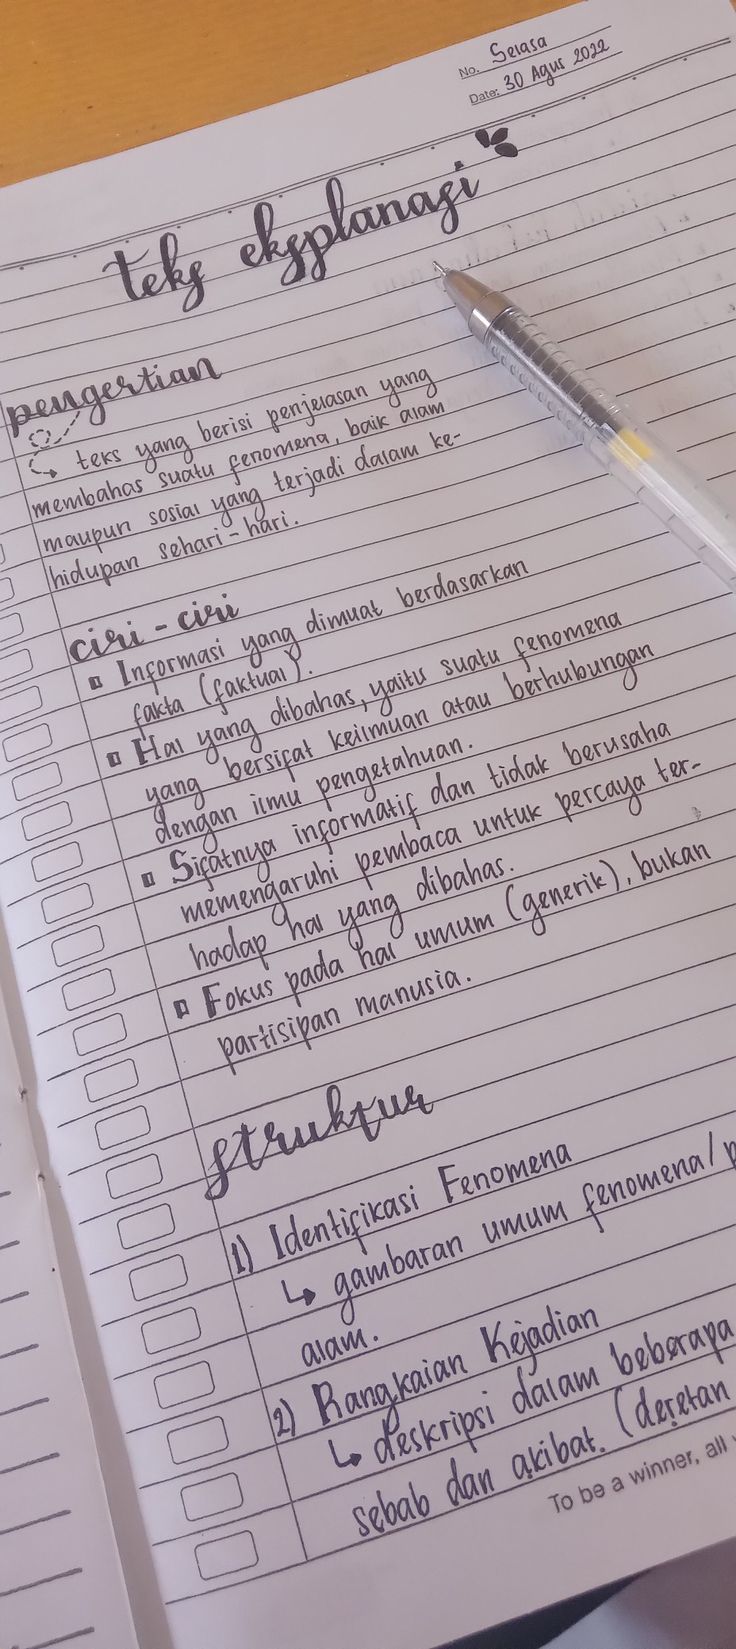 No. Selasa
Date: 30 Agus 2022
teks eksplanasi
pengertian
teks yang berisi penjelasan yang
membahas suatu fenomena, baik alam
maupun sosial yang terjadi dalam ke-
hidupan sehari-hari.
ciri - ciri
Informasi yang dimuat berdasarkan
fakta (faktual).
Hal yang dibahas, yaitu suatu fenomena
yang bersifat keilmuan atau berhubungan
dengan ilmu pengetahuan.
Sifatnya informatif dan tidak berusaha
memengaruhi pembaca untuk percaya ter-
hadap hal yang dibahas.
Fokus pada hal umum (generik), bukan
partisipan manusia.
struktur
1) Identifikasi Fenomena
↳ gambaran umum fenomena/
alam.
2) Rangkaian Kejadian
↳ deskripsi dalam beberapa
sebab dan akibat. (deretan
To be a winner, all